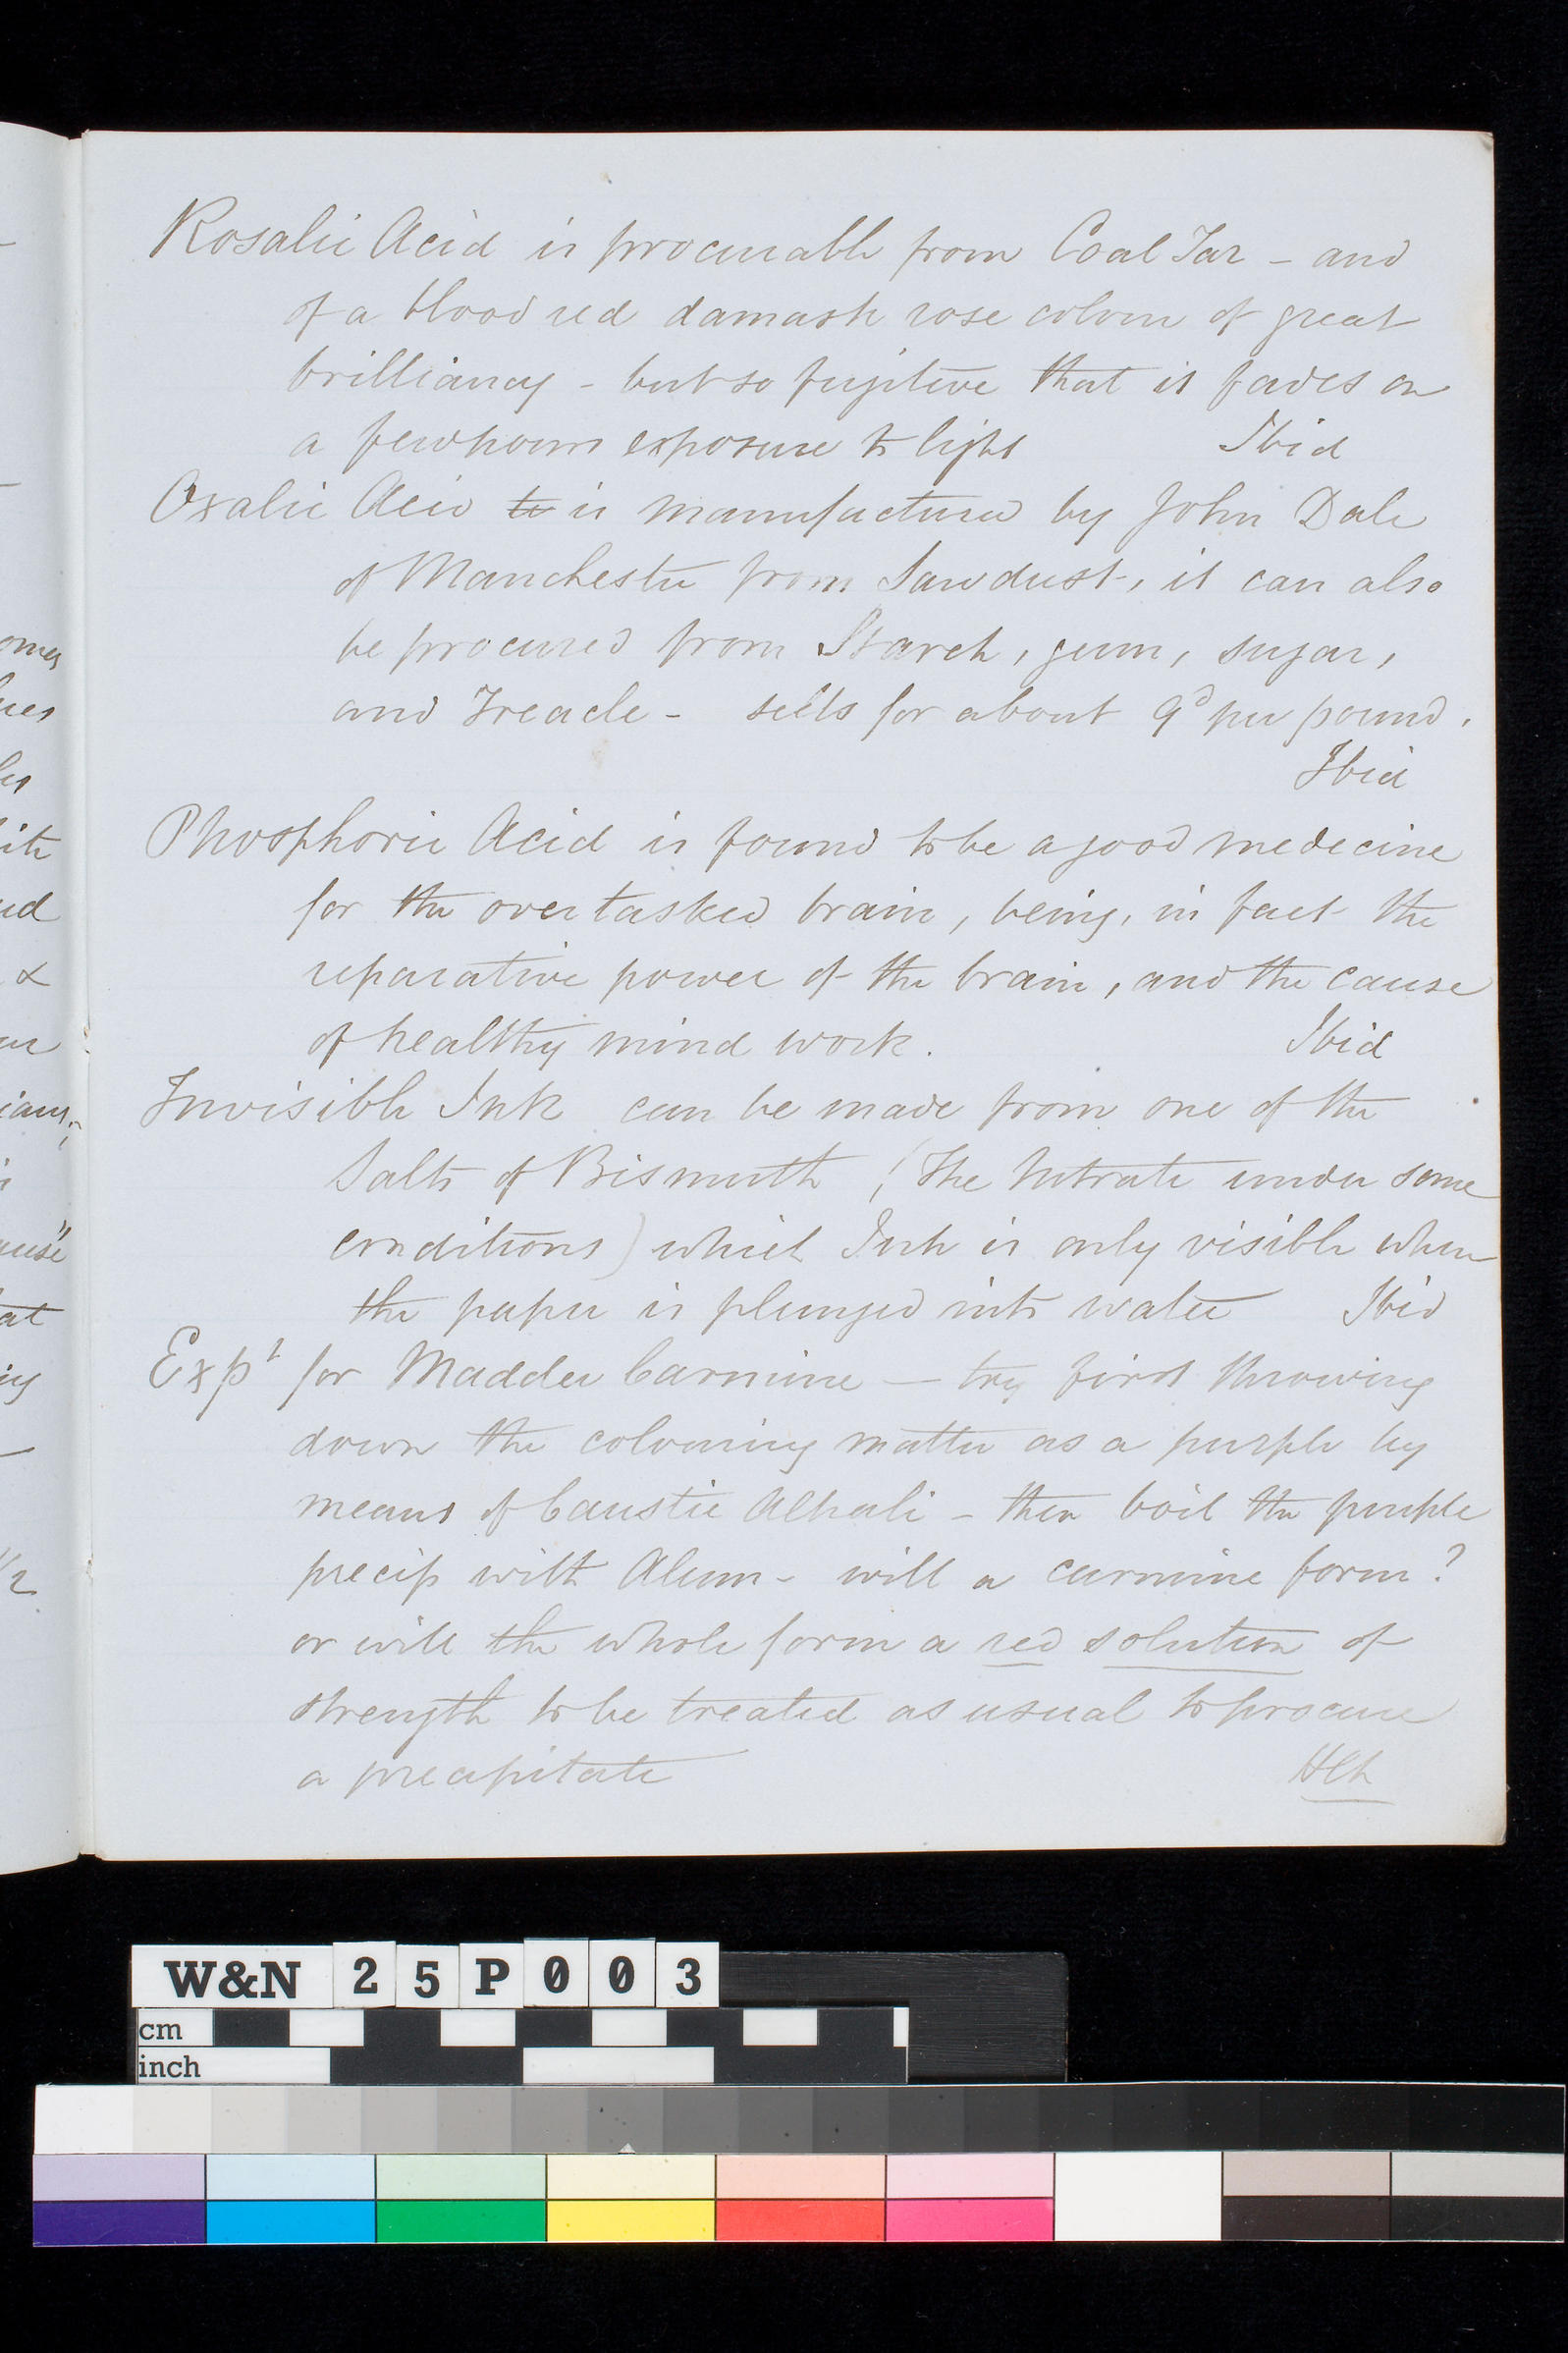 Rosalic Acid is procurable from Coal Tar – and
of a blood red damask rose colour of great
brilliancy – but so fugitive that it fades on
a few hours exposure to light Ibid
Oxalic Acid to is manufactured by John Dale
of Manchester from Sawdust, it can also
be procured from Starch, gum, sugar,
and Treacle – sells for about 9d per pound.
Ibid
Phosphoric Acid is found to be a good medecine
for the overtasked brain, being, in fact the
reparative power of the brain, and the cause
of healthy mind work. Ibid
Invisible Ink can be made from one of the
Salts of Bismuth (The Nitrate under some
conditions) which Ink is only visible when
the paper is plunged into water Ibid
Expt for Madder Carmine — try first throwing
down the colouring matter as a purple by
means of Caustic Alkali – then boil the purple
precip with Alum – will a carmine form?
or will the whole form a red solution of
strength to be treated as usual to procure
a precipitate
omes
ite
ed
&
iam;
at
1/2
W&N 25P003
cm
inch